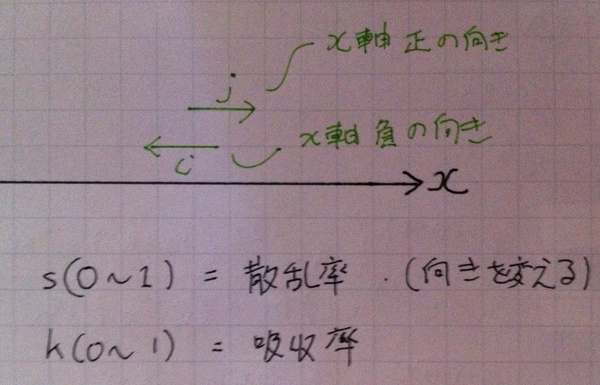 x軸正の向き
j
x軸負の向き
i
x
s(0~1) = 散乱率.(向きを変える)
k(0~1) = 吸収率